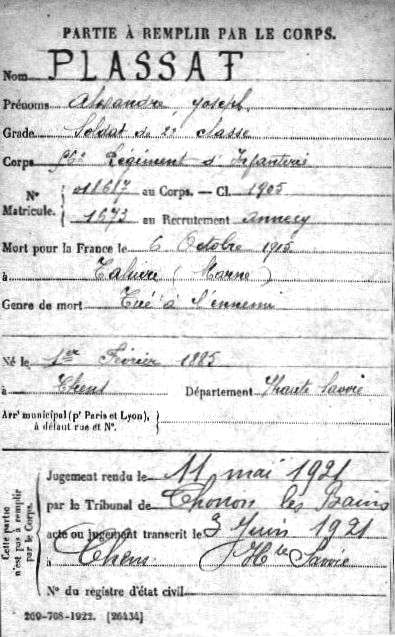 PARTIE À REMPLIR PAR LE CORPS.
Nom PLASSAT
Prénoms Alexandre Joseph
Grade Soldat de 2e classe
Corps Régiment d'Infanterie
N° Matricule. 011617 au Corps. — Cl. 1905
1573 au Recrutement Annecy
Mort pour la France le 6 Octobre 1915
à Tahure (Marne)
Genre de mort Tué à l'ennemi
Né le 1er Février 1885
à Chens Département Haute Savoie
Arrt municipal (pr Paris et Lyon),
à défaut rue et N°.
Cette partie
n'est pas à remplir
par le Corps.
Jugement rendu le 11 mai 1921
par le Tribunal de Thonon les Bains
acte ou jugement transcrit le 3 Juin 1921
à Chens Hte Savoie
N° du registre d'état civil
269-708-1922. [26434]